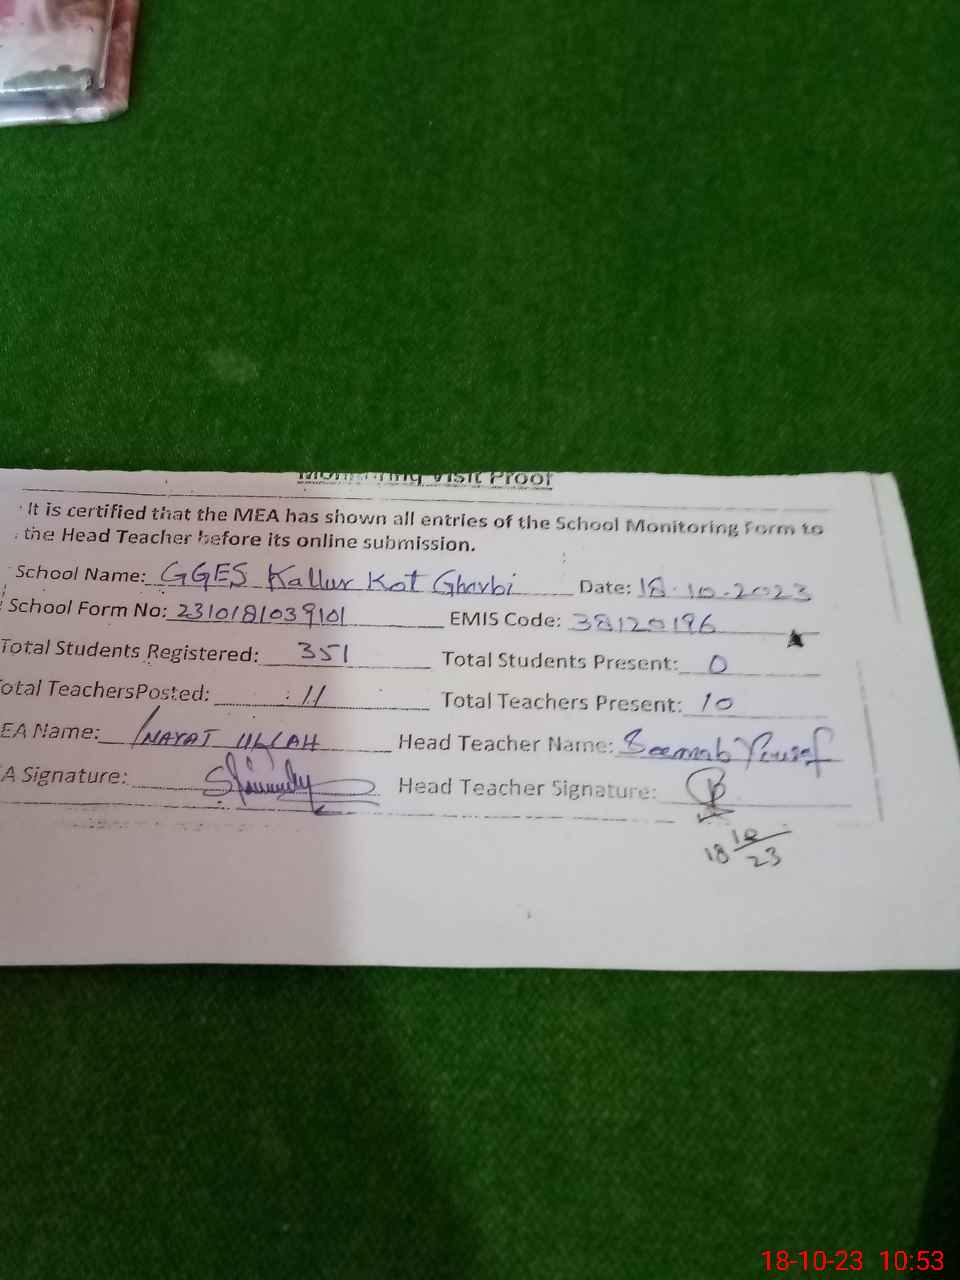 Monitoring Visit Proof
It is certified that the MEA has shown all entries of the School Monitoring Form to
the Head Teacher before its online submission.
School Name: GGES Kallur Kot Gharbi Date: 18.10.2023
School Form No: 2310181039101 EMIS Code: 38120196
Total Students Registered: 351 Total Students Present: 0
otal TeachersPosted: 11 Total Teachers Present: 10
EA Name: INAYAT ULLAH Head Teacher Name: Seemab Yousaf
A Signature: Head Teacher Signature:
18 10
23
18-10-23 10:53